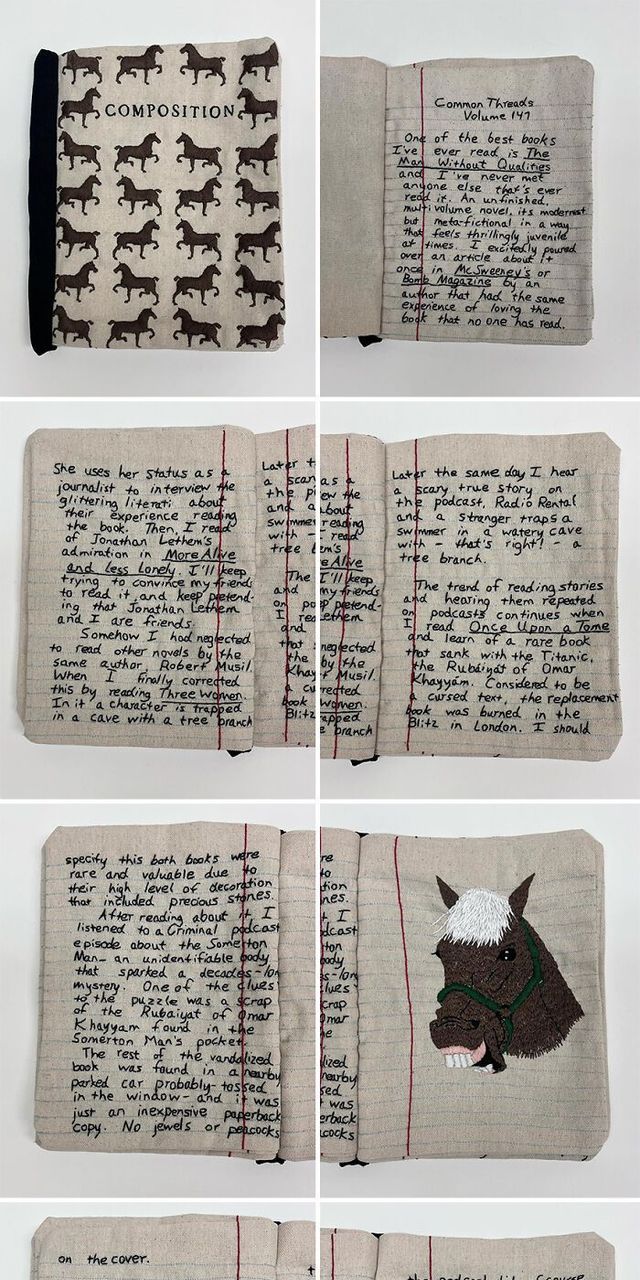 COMPOSITION
Common Threads
Volume 147
One of the best books
I've ever read is The
Man Without Qualities
and I've never met
anyone else that's ever
read it. An unfinished,
multivolume novel, its modernist
but meta-fictional in a way
that feels thrillingly juvenile
at times. I excitedly poured
over an article about it
once in McSweeney's or
Bomb Magazine by an
author that had the same
experience of loving the
book that no one has read.
She uses her status as a
journalist to interview the
glittering literati about
their experience reading
the book. Then, I read
of Jonathan Lethem's
admiration in More Alive
and Less Lonely. I'll keep
trying to convince my friends
to read it and keep pretend-
ing that Jonathan Lethem
and I are friends.
Somehow I had neglected
to read other novels by the
same author, Robert Musil.
When I finally corrected
this by reading Three Women.
In it a character is trapped
in a cave with a tree branch
Later the same day I hear
a scary true story on
the podcast, Radio Rental
and a stranger traps a
swimmer in a watery cave
with - that's right! - a
tree branch.
The trend of reading stories
and hearing them repeated
on podcasts continues when
I read Once Upon a Tome
and learn of a rare book
that sank with the Titanic,
the Rubaiyat of Omar
Khayyam. Considered to be
a cursed text, the replacement
book was burned in the
Blitz in London. I should
specify this both books were
rare and valuable due to
their high level of decoration
that included precious stones.
After reading about it, I
listened to a Criminal podcast
episode about the Somerton
Man- an unidentifiable body
that sparked a decades-long
mystery. One of the clues
to the puzzle was a scrap
of the Rubaiyat of Omar
Khayyam found in the
Somerton Man's pocket.
The rest of the vandalized
book was found in a nearby
parked car probably tossed
in the window- and it was
just an inexpensive paperback
copy. No jewels or peacocks
on the cover.